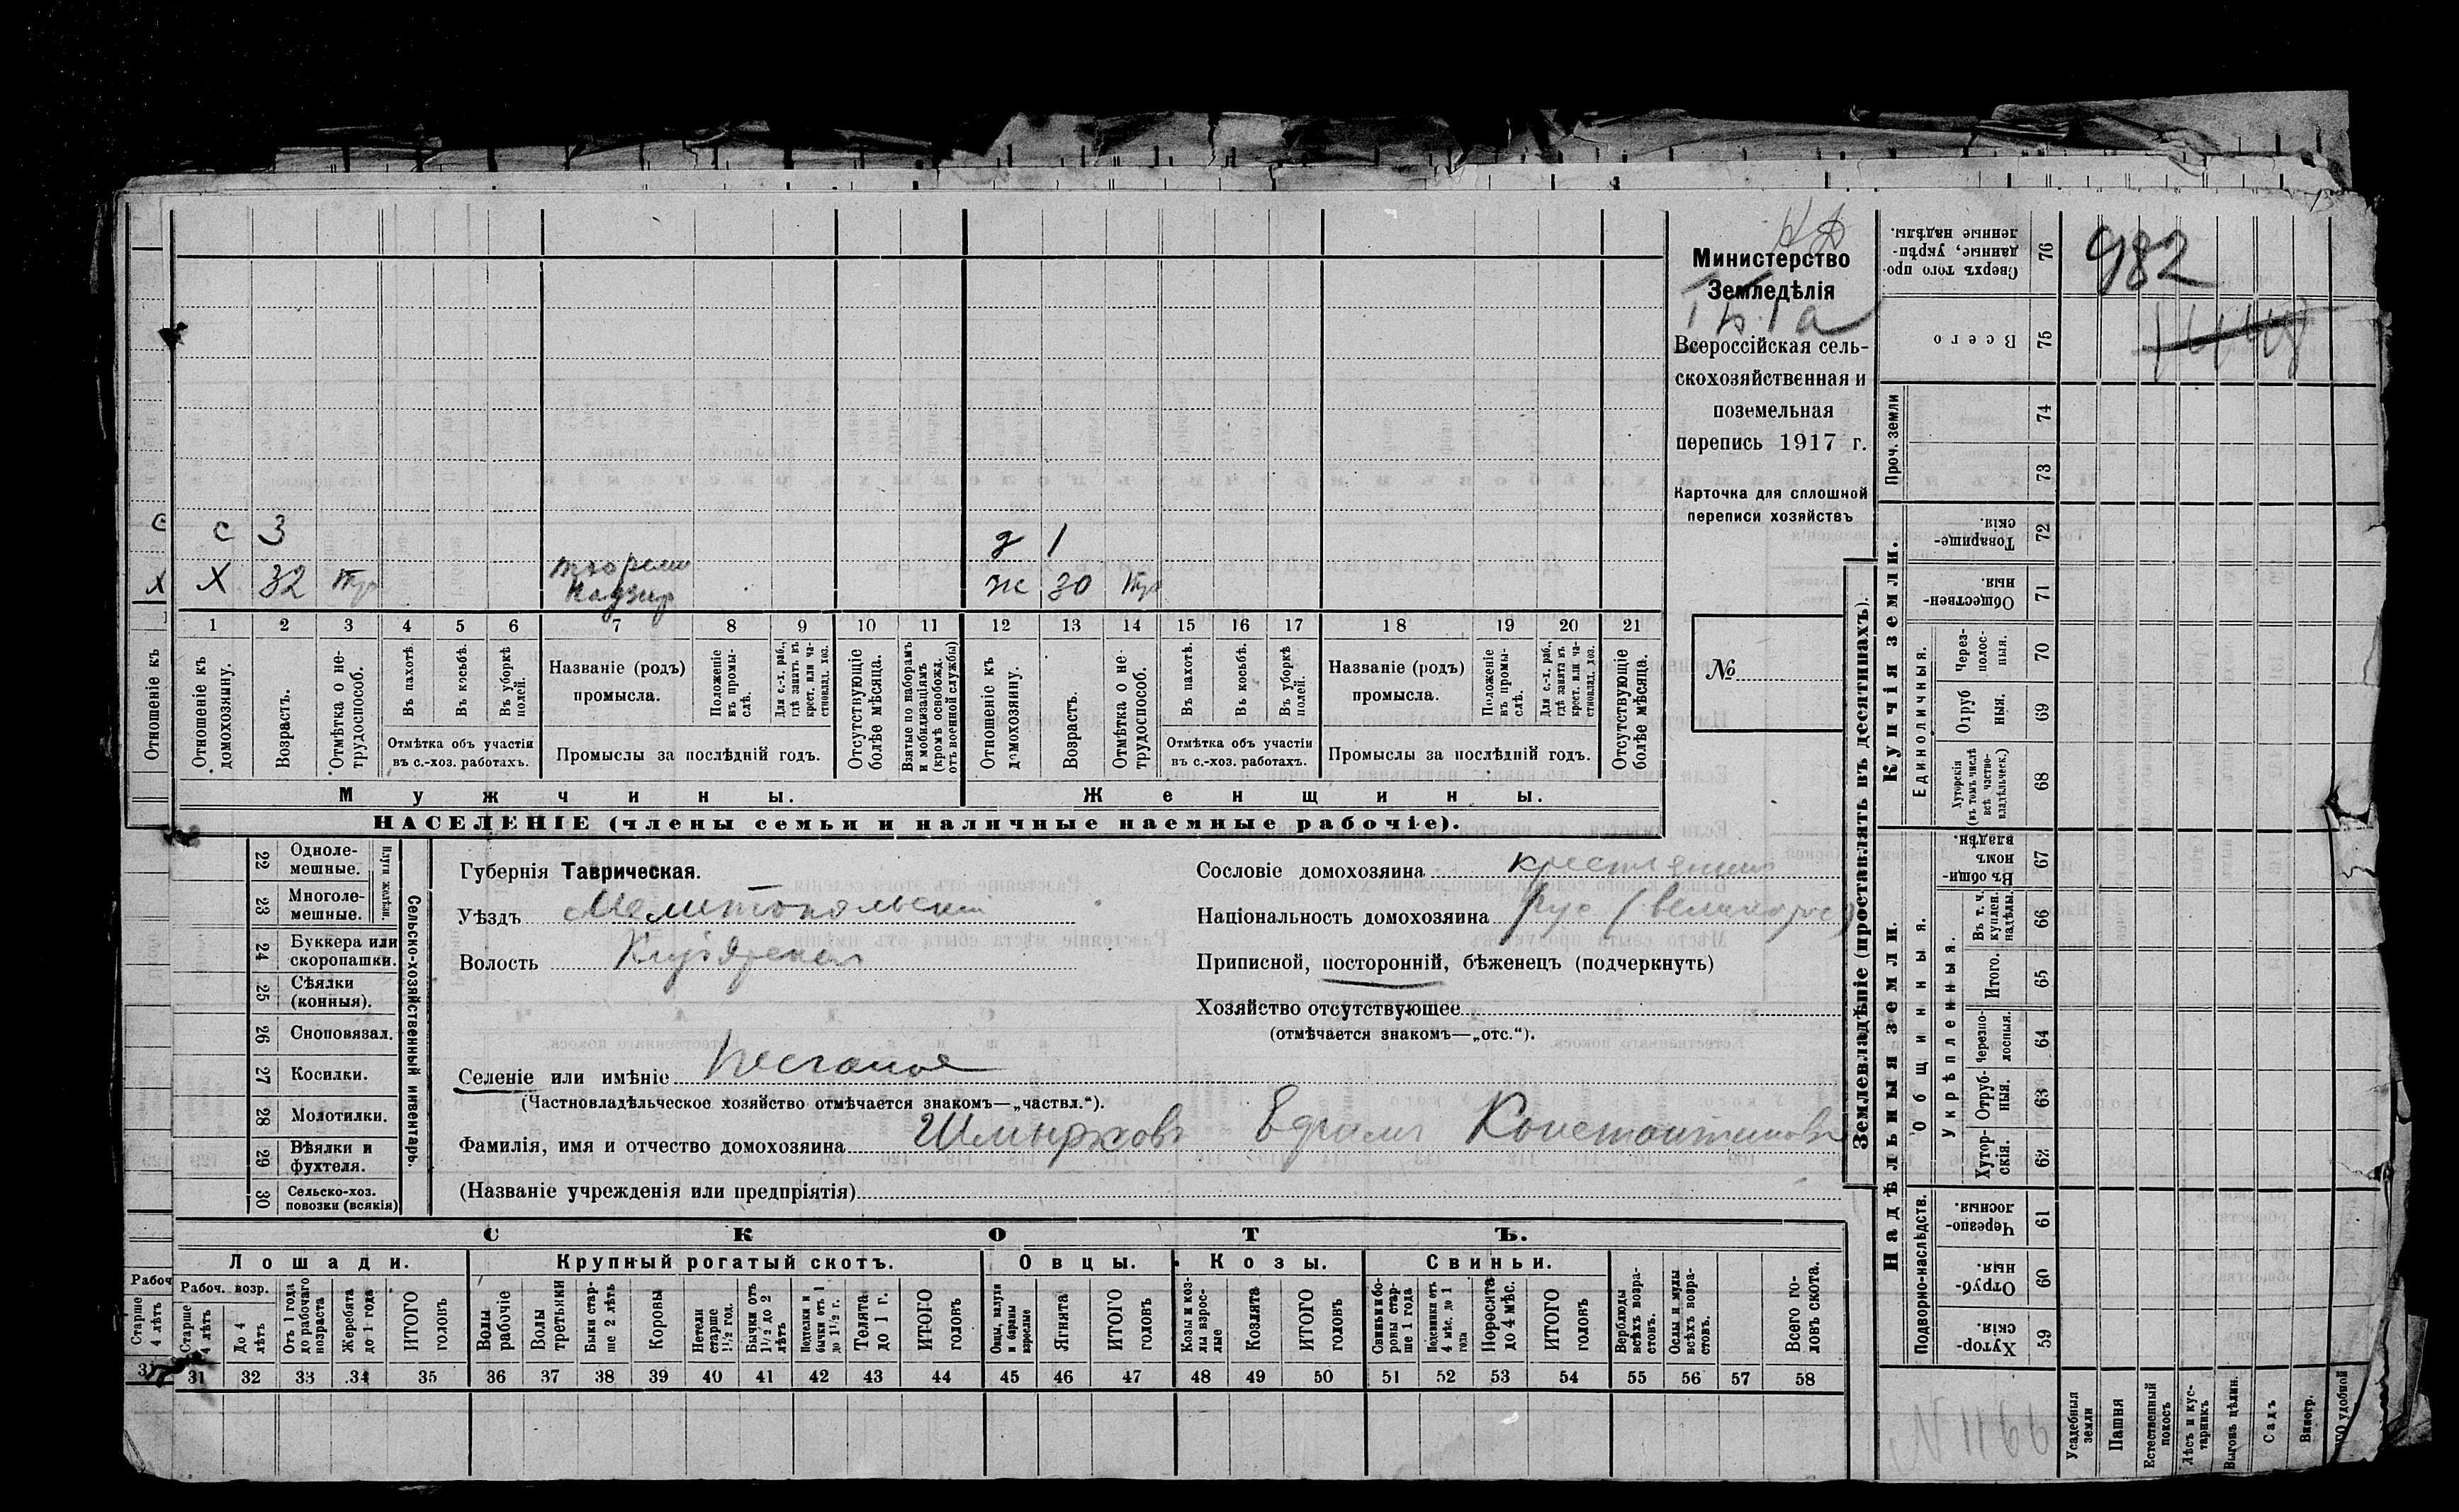 982
Министерство
Земледѣлія
Всероссійская сель-
скохозяйственная и
поземельная
перепись 1917 г.
Карточка для сплошной
переписи хозяйствъ
№
с 3
д 1
Х 32
ж 30
1 2 3 4 5 6 7 8 9 10 11 12 13 14 15 16 17 18 19 20 21
Отношеніе къ
Отношеніе къ домохозяину.
Возрастъ.
Отмѣтка о не-трудоспособ.
Въ пахотѣ.
Въ косьбѣ.
Въ уборкѣ полей.
Отмѣтка объ участіи
въ с.-хоз. работахъ.
Названіе (родъ)
промысла.
Положеніе въ промы-слѣ.
Для с.-х. раб., гдѣ занятъ въ крест. или ча-стновлад. хоз.
Промыслы за послѣдній годъ.
Отсутствующіе болѣе мѣсяца.
Взятые по наборамъ и мобилизаціямъ (кромѣ освобожд. отъ военной службы)
Отношеніе къ домохозяину.
Возрастъ.
Отмѣтка о не-трудоспособ.
Въ пахотѣ.
Въ косьбѣ.
Въ уборкѣ полей.
Отмѣтка объ участіи
въ с.-хоз. работахъ.
Названіе (родъ)
промысла.
Положеніе въ промы-слѣ.
Для с.-х. раб., гдѣ занятъ въ крест. или ча-стновлад. хоз.
Промыслы за послѣдній годъ.
Отсутствующіе болѣе мѣсяца.
Мужчины.
Женщины.
НАСЕЛЕНІЕ (члены семьи и наличные наемные рабочіе).
22 Одноле-мешные.
23 Многоле-мешные.
24 Буккера или скоропашки.
25 Сѣялки (конныя).
26 Сноповязал.
27 Косилки.
28 Молотилки.
29 Вѣялки и фухтеля.
30 Сельско-хоз. повозки (всякія)
Сельско-хозяйственный инвентарь.
Губернія Таврическая.
Уѣздъ Мелитопольскій
Волость
Сословіе домохозяина крестьянинъ
Національность домохозяина рус (великорос)
Приписной, посторонній, бѣженецъ (подчеркнуть)
Хозяйство отсутствующее
(отмѣчается знакомъ—„отс.“).
Селеніе или имѣніе Песчаное
(Частновладѣльческое хозяйство отмѣчается знакомъ—„частвл.“).
Фамилія, имя и отчество домохозяина Константиновъ
(Названіе учрежденія или предпріятія)
СКОТЪ.
Лошади.
Крупный рогатый скотъ.
Овцы.
Козы.
Свиньи.
Рабоч. возр.
Старше 4 лѣтъ
До 4 лѣтъ
Отъ 1 года до рабочаго возраста
Жеребята до 1 года
ИТОГО головъ
Волы рабочіе
Волы третьяки
Быки стар-ше 2 лѣтъ
Коровы
Нетели старше 1½ год.
Бычки отъ 1½ до 2 лѣтъ
Телята до 1 г.
ИТОГО головъ
Овцы, валухи и бараны взрослые
Ягнята
ИТОГО головъ
Козы и коз-лы взрос-лые
Козлята
ИТОГО головъ
Свиньи и бо-ровы стар-ше 1 года
Подсвинки отъ 4 мѣс. до 1 года
Поросята до 4 мѣс.
ИТОГО головъ
Верблюды всѣхъ возра-стовъ.
Ослы и мулы всѣхъ возра-стовъ.
Всего го-ловъ скота.
31 32 33 34 35 36 37 38 39 40 41 42 43 44 45 46 47 48 49 50 51 52 53 54 55 56 57 58
Землевладѣніе (проставлять въ десятинахъ).
Надѣльныя земли.
Купчія земли.
Проч. земли
Подворно-наслѣдств.
Общинныя.
Укрѣпленныя.
Единоличныя.
76 Сверхъ того про-данные, укрѣп-ленные надѣлы.
75 Всего
74
73
72 Товарище-скія.
71 Обществен-ныя.
70 Через-полос-ныя.
69 Отруб ныя.
68 Хуторскія (въ томъ числѣ всѣ частно-владѣльческ.)
67 Въ общин номъ владѣн.
66 Въ т. ч. куплен. надѣлы.
65 Итого.
64 Черезпо-лосныя.
63 Отруб-ныя.
62 Хутор-скія.
61 Черезпо-лосныя.
60 Отруб-ныя.
59 Хутор-скія.
Усадебныя земли
Пашня
Естественный покосъ
Лѣсъ и кус-тарникъ
Выгонъ цѣлин.
Садъ
Виногр.